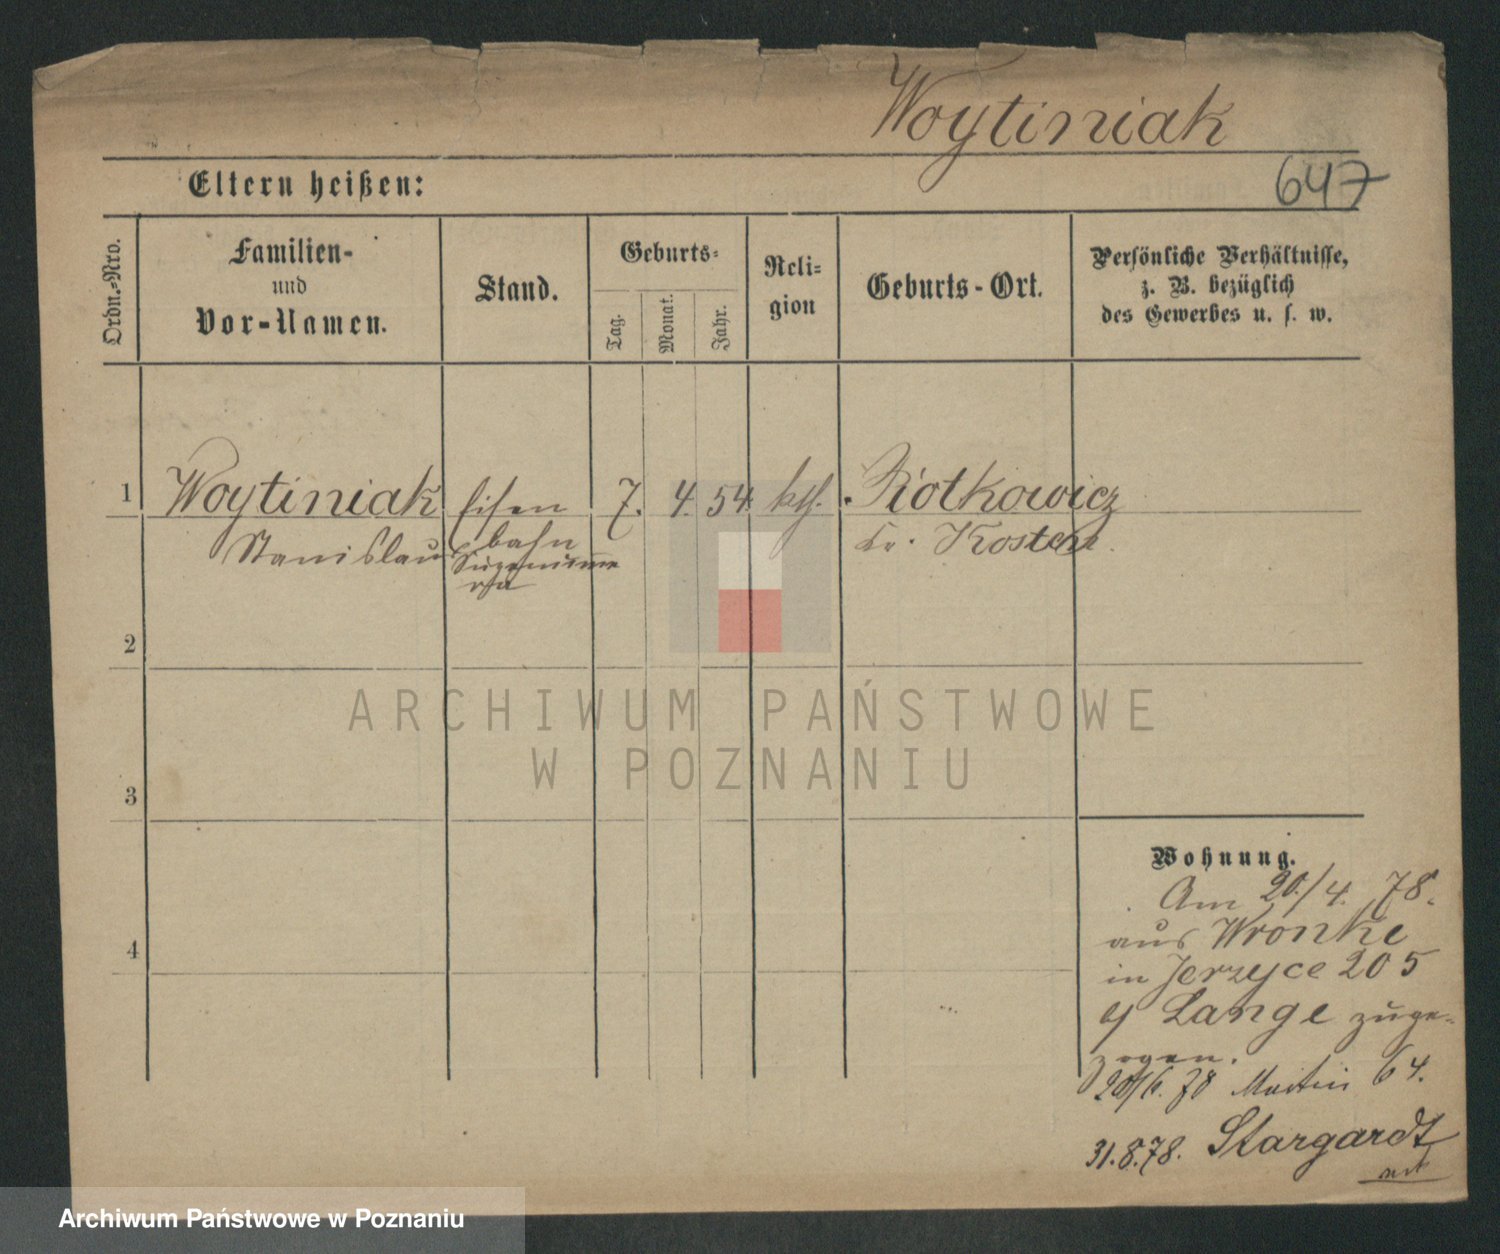 Woytiniak
Eltern heißen:
647
Ordn.-Nro.
Familien-
und
Vor-Namen.
Stand.
Geburts-
Tag.
Monat.
Jahr.
Reli-
gion
Geburts-Ort.
Persönliche Verhältnisse,
z. B. bezüglich
des Gewerbes u. s. w.
1 Woytiniak Eisen 7. 4. 54 kth. Piotkowicz
Stanislaus bahn Kr. Kosten.
2
3
4
Wohnung.
Am 20./4. 78.
aus Wronke
in Jerzyce 205
Lange zuge-
zogen.
78 Martin 64.
31.8.78. Stargardt
ARCHIWUM PAŃSTWOWE
W POZNANIU
Archiwum Państwowe w Poznaniu